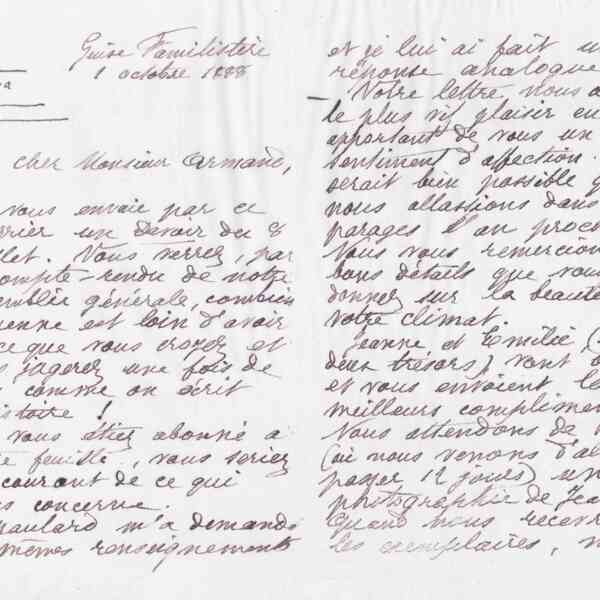 Guise Familistère
1 octobre 1888
cher Monsieur Armand,
vous envoie par ce
rrier un devoir du 8
llet. Vous verrez, par
ompte-rendu de notre
emblée générale, combien
ienne est loin d'avoir
ce que vous croyez et
s jugerez une fois de
comme on écrit
istoire !
vous étiez abonné à
e feuille, vous seriez
courant de ce qui
s concerne.
m'a demandé
mêmes renseignements
et je lui ai fait u
réponse analogue
— Votre lettre nous a
le plus vif plaisir en
apportant de vous un
sentiment d'affection.
serait bien possible q
nous allassions dans
parages l'an proch
Nous vous remercion
bons détails que vou
donnez sur la beauté
votre climat.
Jeanne et Emilie (
deux trésors) vont
et vous envoient le
meilleurs complimen
Nous attendons de
(où nous venons d'al
passer 12 jours) un
photographie de Jea
Quand nous recevr
les exemplaires, n